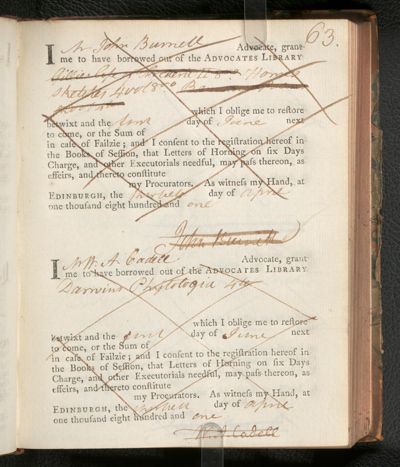 63.
I Mr John Burnett Advocate, grant
me to have borrowed out of the ADVOCATES LIBRARY
which I oblige me to restore
betwixt and the day of June next
to come, or the Sum of
in case of Failzie; and I consent to the registration hereof in
the Books of Session, that Letters of Horning on six Days
Charge, and other Executorials needful, may pass thereon, as
effeirs, and thereto constitute
my Procurators. As witness my Hand, at
EDINBURGH, the day of April
one thousand eight hundred and one
John Burnett
I Mr W. A Cadell Advocate, grant
me to have borrowed out of the ADVOCATES LIBRARY
Darwins Phytologia 4to
which I oblige me to restore
betwixt and the day of June next
to come, or the Sum of
in case of Failzie; and I consent to the registration hereof in
the Books of Session, that Letters of Horning on six Days
Charge, and other Executorials needful, may pass thereon, as
effeirs, and thereto constitute
my Procurators. As witness my Hand, at
EDINBURGH, the day of April
one thousand eight hundred and one
W. A. Cadell